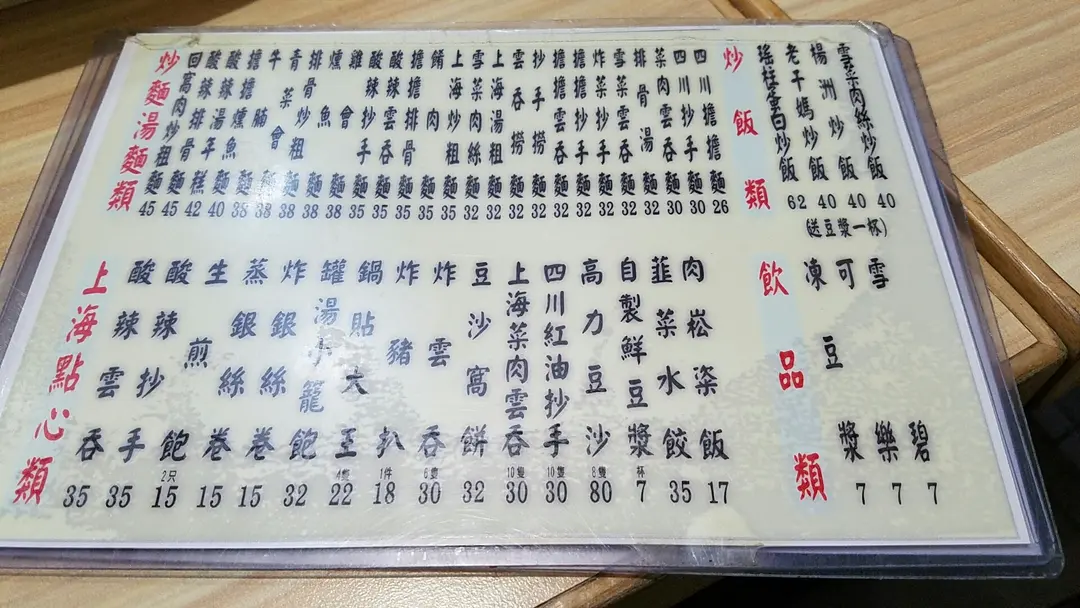 炒麵湯麵類
回窩肉炒粗麵 45
酸辣排骨麵 45
酸辣湯年糕 42
擔擔燻魚麵 40
牛腩麵 38
排骨麵 38
燻魚麵 38
酸辣抄手麵 35
擔擔排骨麵 35
餚肉麵 35
上海炒粗麵 35
雪菜肉絲麵 32
上海湯粗麵 32
雲吞撈麵 32
抄手撈麵 32
擔擔雲吞麵 32
擔擔抄手麵 32
炸菜抄手麵 32
雪菜雲吞麵 32
排骨湯麵 32
菜肉雲吞麵 30
四川抄手麵 30
四川擔擔麵 26
炒飯類
瑤柱蛋白炒飯 62
老干媽炒飯 40
楊洲炒飯 40
雪菜肉絲炒飯 40
(送豆漿一杯)
上海點心類
酸辣雲吞 35
酸辣抄手 35
生煎飽 2只 15
蒸銀絲卷 15
炸銀絲卷 15
罐湯小籠飽 32
鍋貼大王 4隻 22
炸豬扒 1件 18
炸雲吞 6隻 30
豆沙窩餅 32
上海菜肉雲吞 10隻 30
四川紅油抄手 10隻 30
高力豆沙 8隻 80
自製鮮豆漿 杯 7
韮菜水餃 35
肉崧粢飯 17
飲品類
凍豆漿 7
可樂 7
雪碧 7